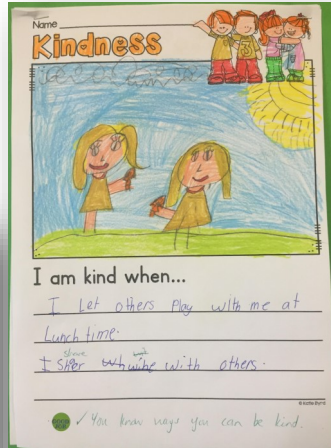 Name
Kindness
I am kind when...
I Let others Play with me at
Lunch time.
share
I Sher with others.
© Katie Byrd
✓ You know ways you can be kind.